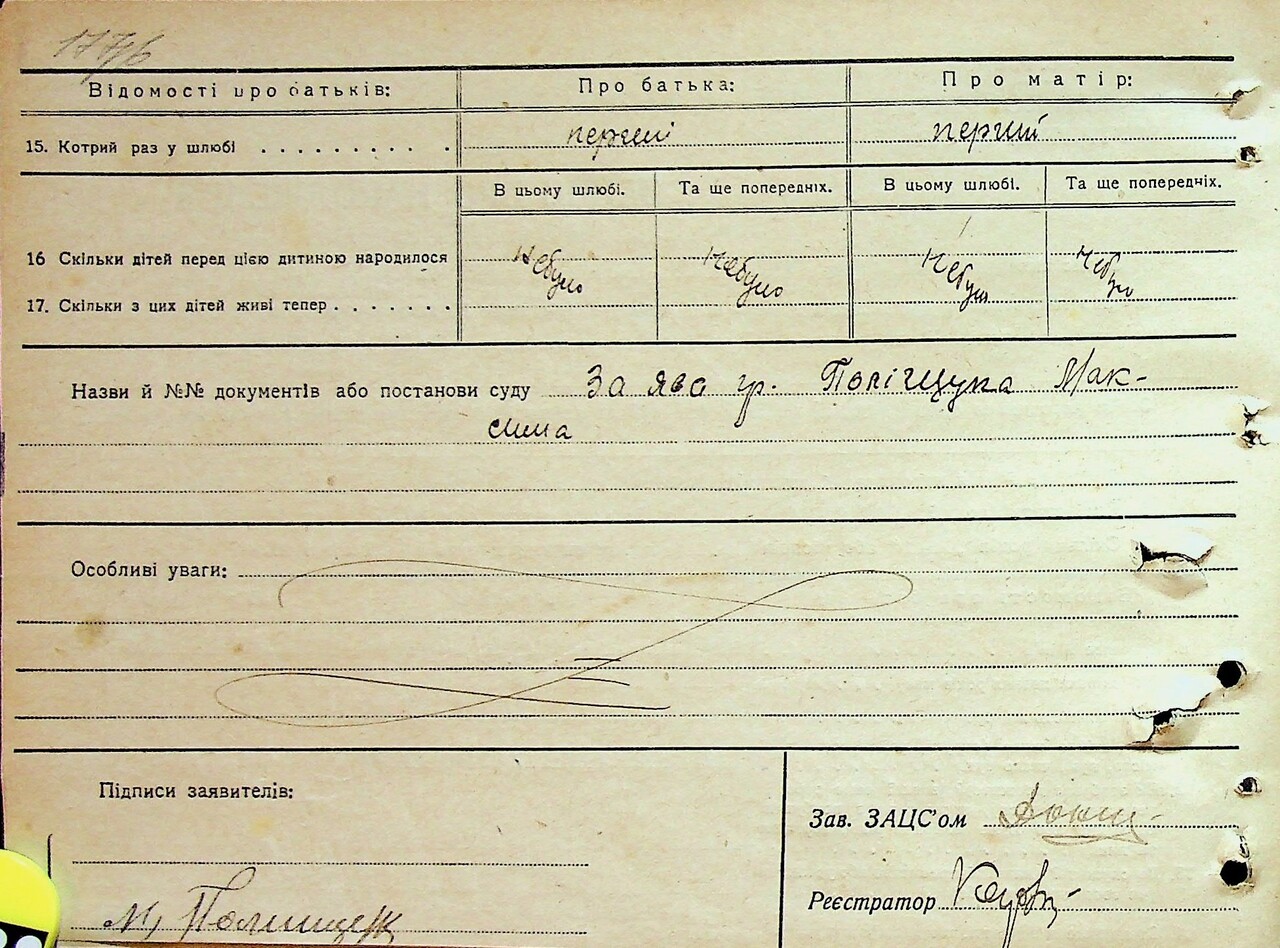 177б
Відомості про батьків: Про батька: Про матір:
15. Котрий раз у шлюбі . . . . . . . . . . перший перший
В цьому шлюбі. Та ще попередніх. В цьому шлюбі. Та ще попередніх.
16 Скільки дітей перед цією дитиною народилося небуло небуло небуло небуло
17. Скільки з цих дітей живі тепер . . . . . . .
Назви й №№ документів або постанови суду За яво гр. Поліщука Мак-
сима
Особливі уваги:
Підписи заявителів:
Зав. ЗАЦС'ом
М, Полищук
Реєстратор